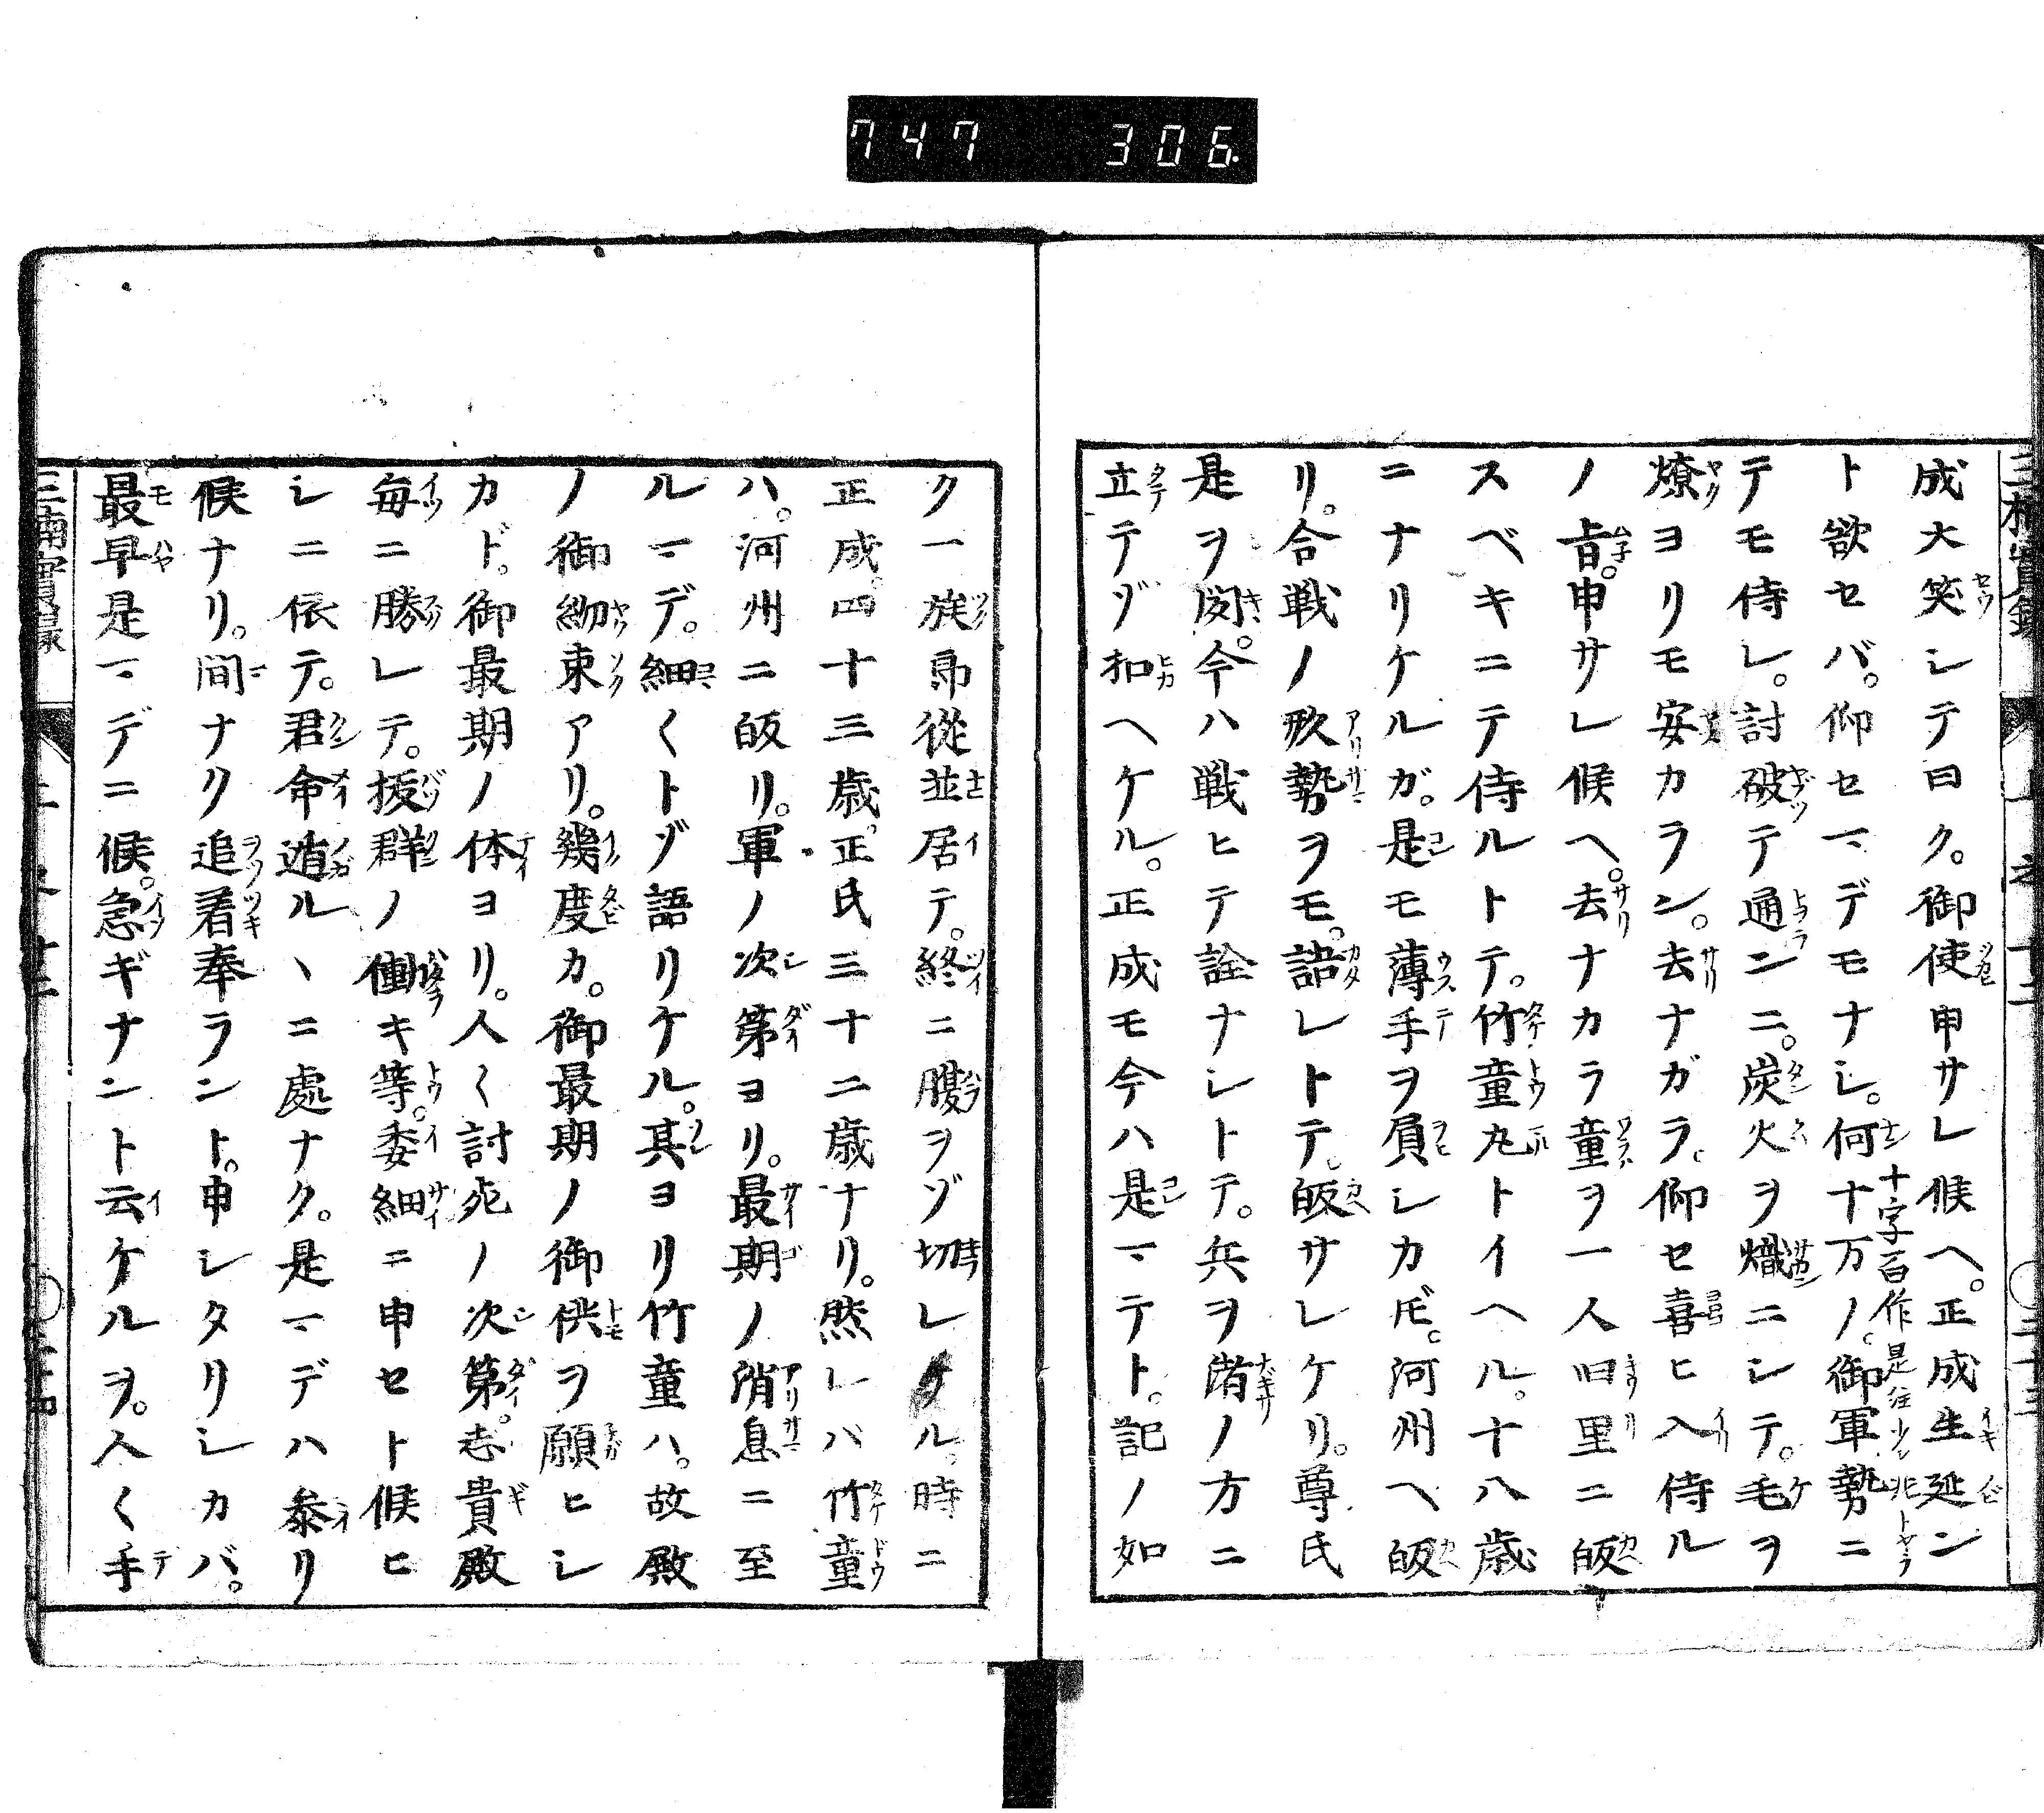 747 306.
成大笑シテ曰ク。御使申サレ候ヘ。正成生延ン
ト欲セバ。仰セマデモナシ。何十万ノ。御軍勢ニ
テモ侍レ。討破テ通ンニ。炭火ヲ熾ニシテ。毛ヲ
燎ヨリモ安カラン。去ナガラ。仰セ喜ヒ入侍ル
ノ旨。申サレ候ヘ。去ナカラ童ヲ一人旧里ニ皈
スベキニテ侍ルトテ。竹童丸トイヘル。十八歳
ニナリケルガ。是モ薄手ヲ負シカ𪜈。河州ヘ皈
リ。合戦ノ形勢ヲモ。語レトテ。皈サレケリ。尊氏
是ヲ聞。今ハ戦ヒテ詮ナシトテ。兵ヲ渚ノ方ニ
立テゾ扣ヘケル。正成モ今ハ是マテト。記ノ如
ク一族郎從並居テ。終ニ腹ヲゾ切レケル。時ニ
正成。四十三歳。正氏三十二歳ナリ。然レバ竹童
ハ。河州ニ皈リ。軍ノ次第ヨリ。最期ノ消息ニ至
ルマデ。細〱トゾ語リケル。其ヨリ竹童ハ。故殿
ノ御約束アリ。幾度カ。御最期ノ御供ヲ願ヒシ
カド。御最期ノ体ヨリ。人〱討死ノ次第。志貴殿
毎ニ勝レテ。抜群ノ働キ等。委細ニ申セト候ヒ
シニ依テ。君命遁ルヽニ處ナク。是マデハ参リ
候ナリ。間ナク追着奉ラント。申シタリシカバ。
最早是マデニ候。急ギナント云ケルヲ。人〱手